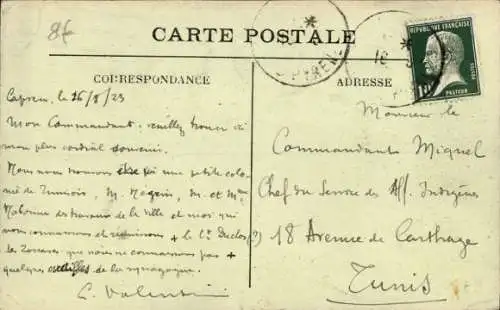 8f
CARTE POSTALE
RÉPUBLIQUE FRANÇAISE
POSTES
10
PASTEUR
CORRESPONDANCE
ADRESSE
le 26/8/23
Mon Commandant, veuillez trouver ici
mon plus cordial souvenir.
Nous nous trouvons ici une petite colo-
nie de Tunisois, M. et Mme
des travaux de la Ville et moi qui
nous connaissons et + le Ct Duclos (?)
de Zouaves que nous ne connaissons pas +
quelques de la synagogue.
Valentin
Monsieur le
Commandant Miquel
Chef du Service des Aff. Indigènes
18 Avenue de Carthage
Tunis